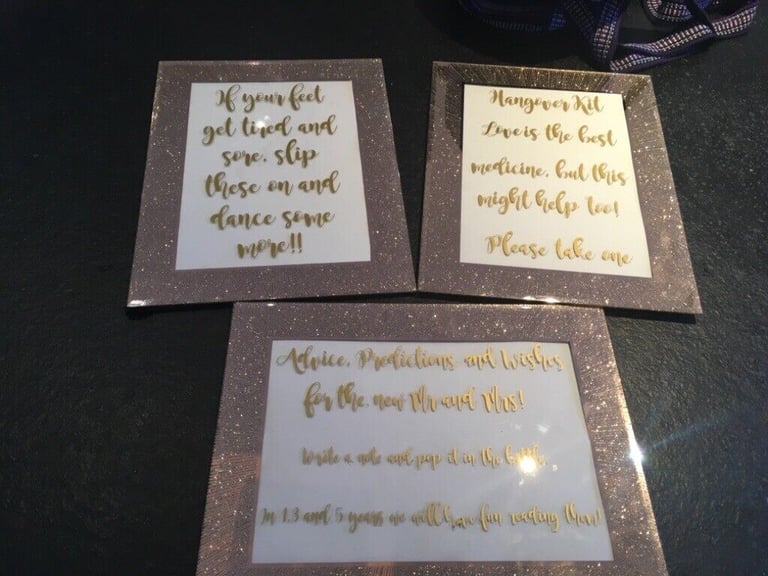 If your feet
get tired and
sore, slip
these on and
dance some
more!!
Hangover Kit
Love is the best
medicine, but this
might help too!
Please take one
Advice, Predictions and Wishes
for the new Mr and Mrs!
Write a note and pop it in the bottle.
In 1,3 and 5 years we will have fun reading them!